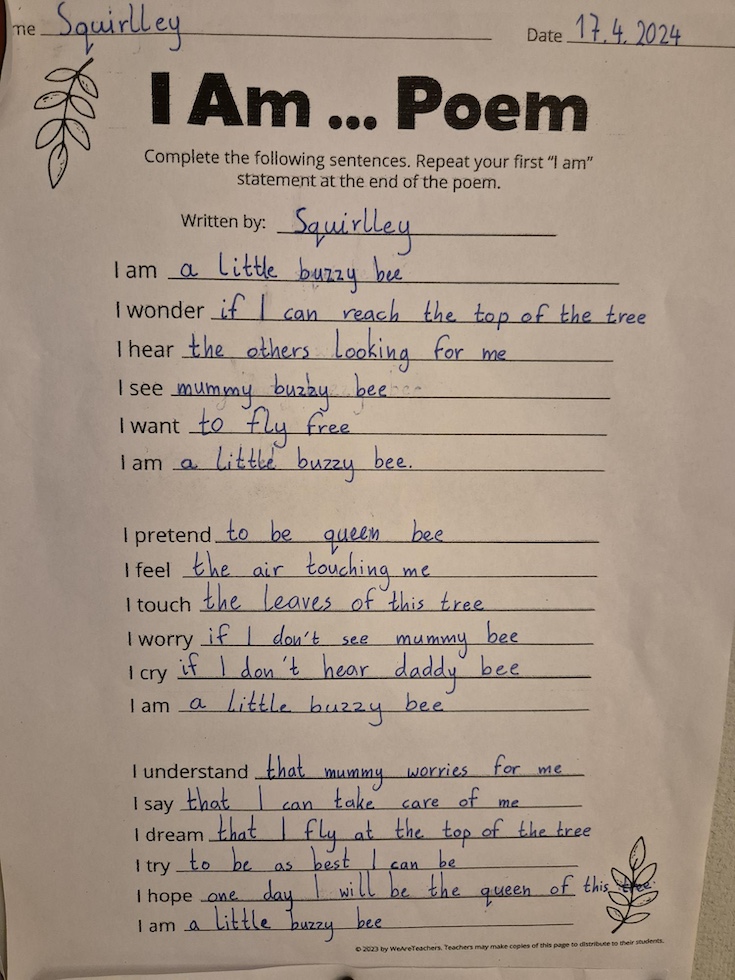 me Squirlley Date 17.4.2024
I Am ... Poem
Complete the following sentences. Repeat your first “I am”
statement at the end of the poem.
Written by: Squirlley
I am a little buzzy bee
I wonder if I can reach the top of the tree
I hear the others looking for me
I see mummy buzby bee
I want to fly free
I am a little buzzy bee.
I pretend to be queen bee
I feel the air touching me
I touch the leaves of this tree
I worry if I don't see mummy bee
I cry if I don't hear daddy bee
I am a little buzzy bee
I understand that mummy worries for me
I say that I can take care of me
I dream that I fly at the top of the tree
I try to be as best I can be
I hope one day I will be the queen of this tree.
I am a little buzzy bee
© 2023 by WeAreTeachers. Teachers may make copies of this page to distribute to their students.